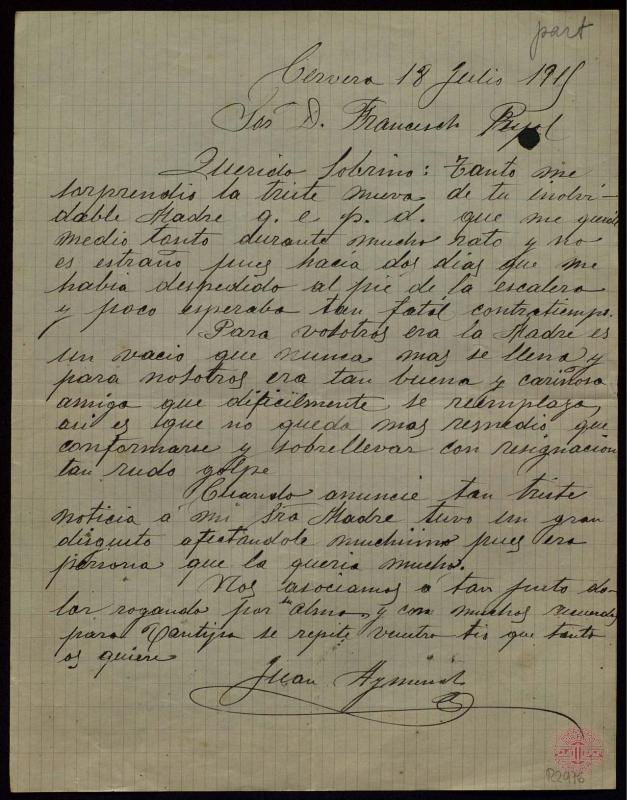 part
Cervera 18 Julio 1915
Sor D. Francesch Pujol
Querido Sobrino: Tanto me
sorprendio la triste nueva de tu inolvi-
dable Madre q. e. p. d. que me quede
medio tonto durante mucho rato y no
es estraño pues hacia dos dias que me
habia despedido al pie de la escalera
y poco esperaba tan fatál contratiempo.
Para vosotros era la Madre es
un vacio que nunca mas se llena y
para nosotros era tan buena y cariñosa
amiga que dificilmente se reemplaza,
asi es que no queda mas remedio que
conformarse y sobrellevar con resignacion
tan rudo golpe
Cuando anuncié tan triste
noticia á mi Sra Madre tuvo un gran
disgusto afectandole muchisimo pues era
persona que la queria mucho.
Nos asociamos á tan justo do-
lor rogando por su alma y con muchos recuerdos
para se repite vuestro tio que tanto
os quiere
Juan Aymerich
R2976